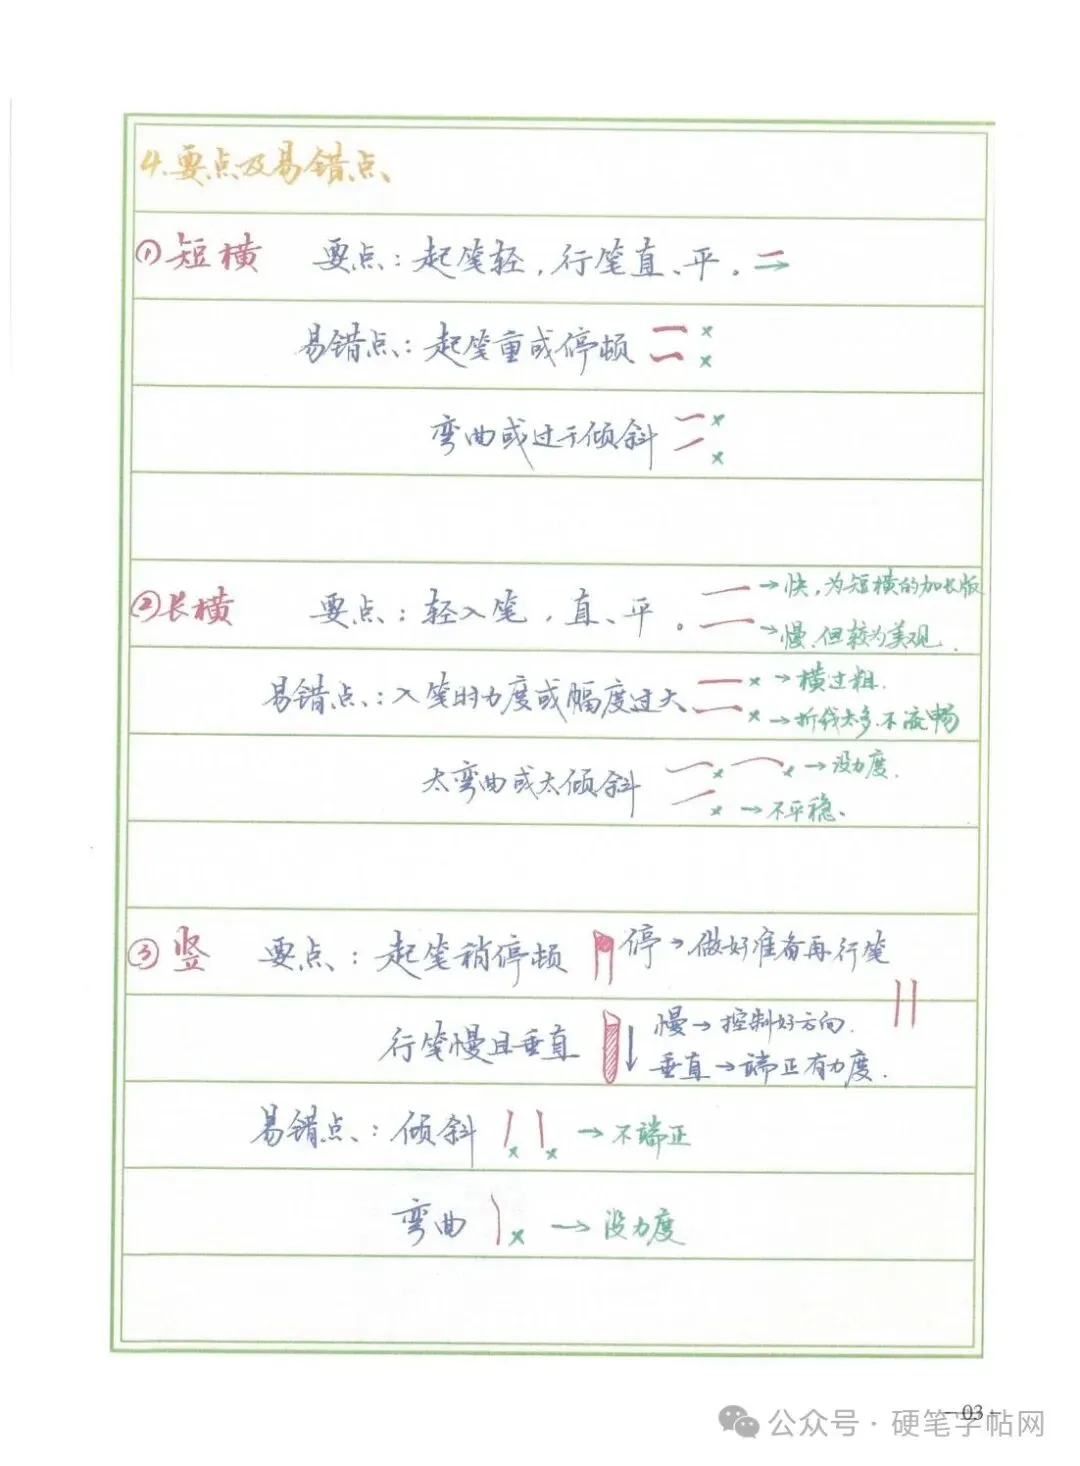 4.要点及易错点
①短横 要点：起笔轻，行笔直、平。
易错点：起笔重或停顿 × ×
弯曲或过于倾斜 × ×
②长横 要点：轻入笔，直、平。 →快，为短横的加长版
→慢，但较为美观.
易错点：入笔时力度或幅度过大 × →横过粗.
× →折线太多.不流畅
太弯曲或太倾斜 × × →没力度.
× →不平稳、
③竖 要点：起笔稍停顿 停→做好准备再行笔
行笔慢且垂直 慢→控制好方向.
垂直→端正有力度.
易错点：倾斜 × × →不端正
弯曲 × →没力度
-03-
公众号·硬笔字帖网